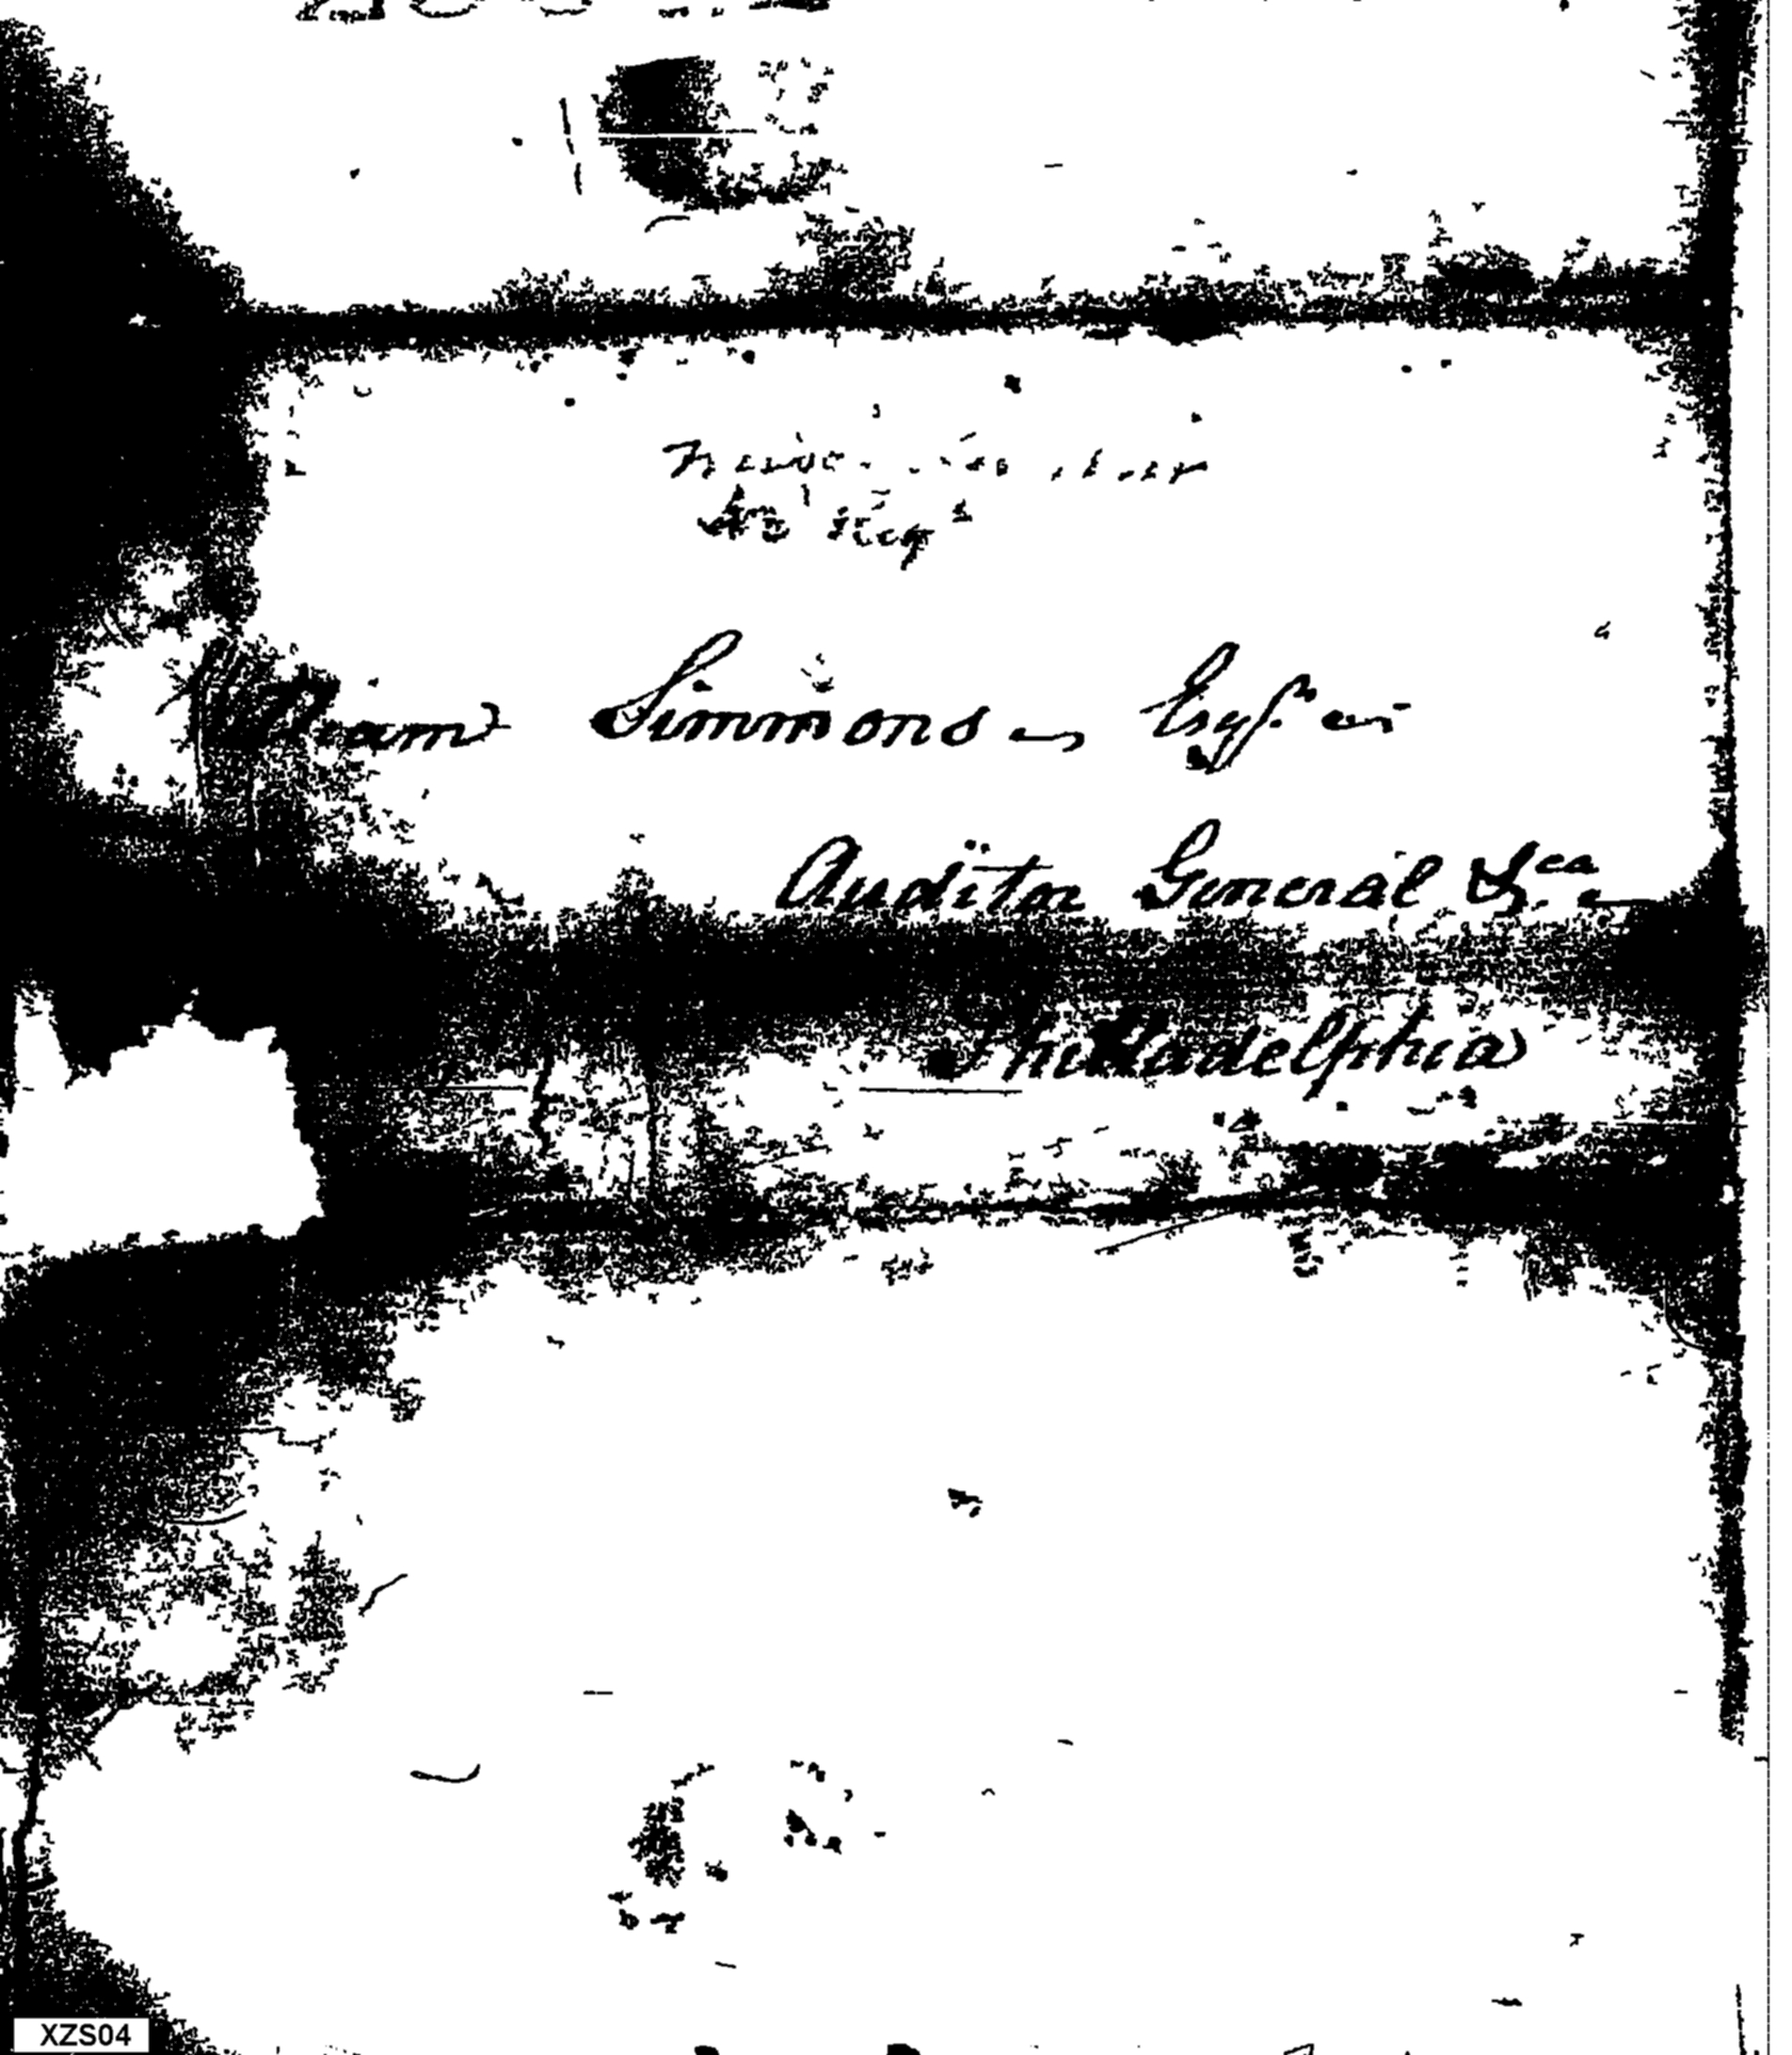 William Simmons Esqr.
Auditor General &ca
Philladelphia
XZS04